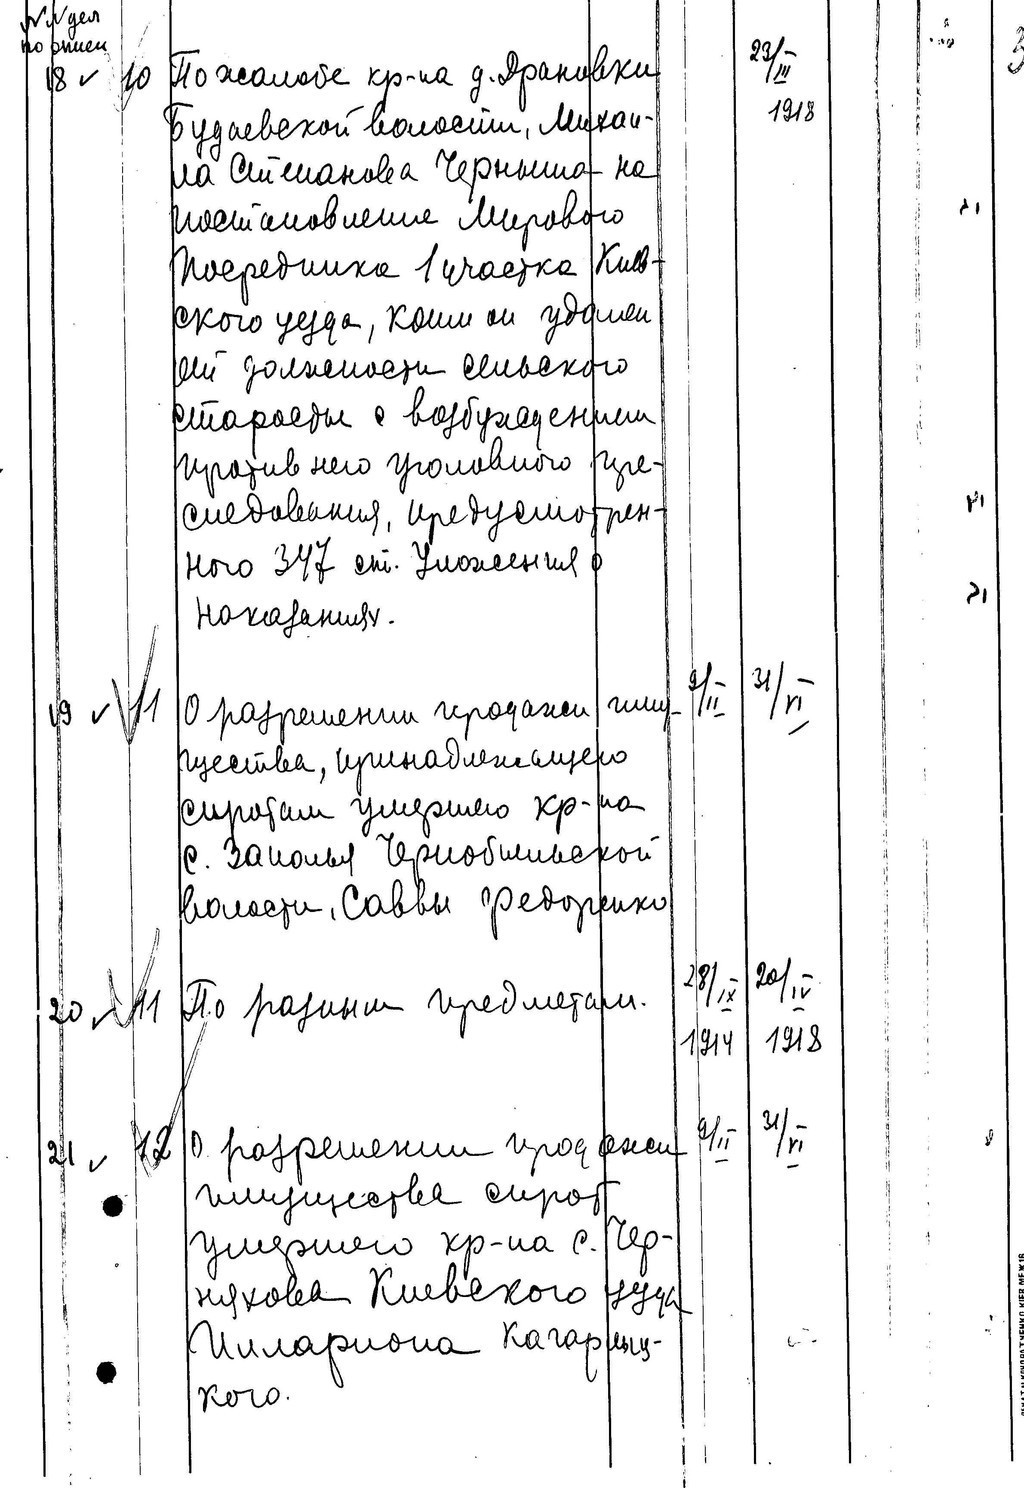 №№ дел
по описи
18 10 По жалобе кр-на д. Драновки 23/III
Будаевской волости, Михаи- 1918
ла Степанова Черныша на
постановление Мирового
Посредника 1 участка Киев-
ского уезда, коим он удален
от должности сельского
старосты с возбуждением
против него уголовного пре-
следования, предусмотрен-
ного 347 ст. Уложения о
наказаниях.
19 11 О разрешении продажи иму- 9/II 31/VI
щества, принадлежащего
сиротам умершего кр-на
с. Заполья Чернобыльской
волости, Саввы Федоренко
20 11 По разным предметам. 28/IX 20/IV
1914 1918
21 12 О разрешении продажи 9/II 31/VI
имущества сирот
умершего кр-на с. Чер-
няхова Киевского уезда
Иллариона Кагарлыц-
кого.